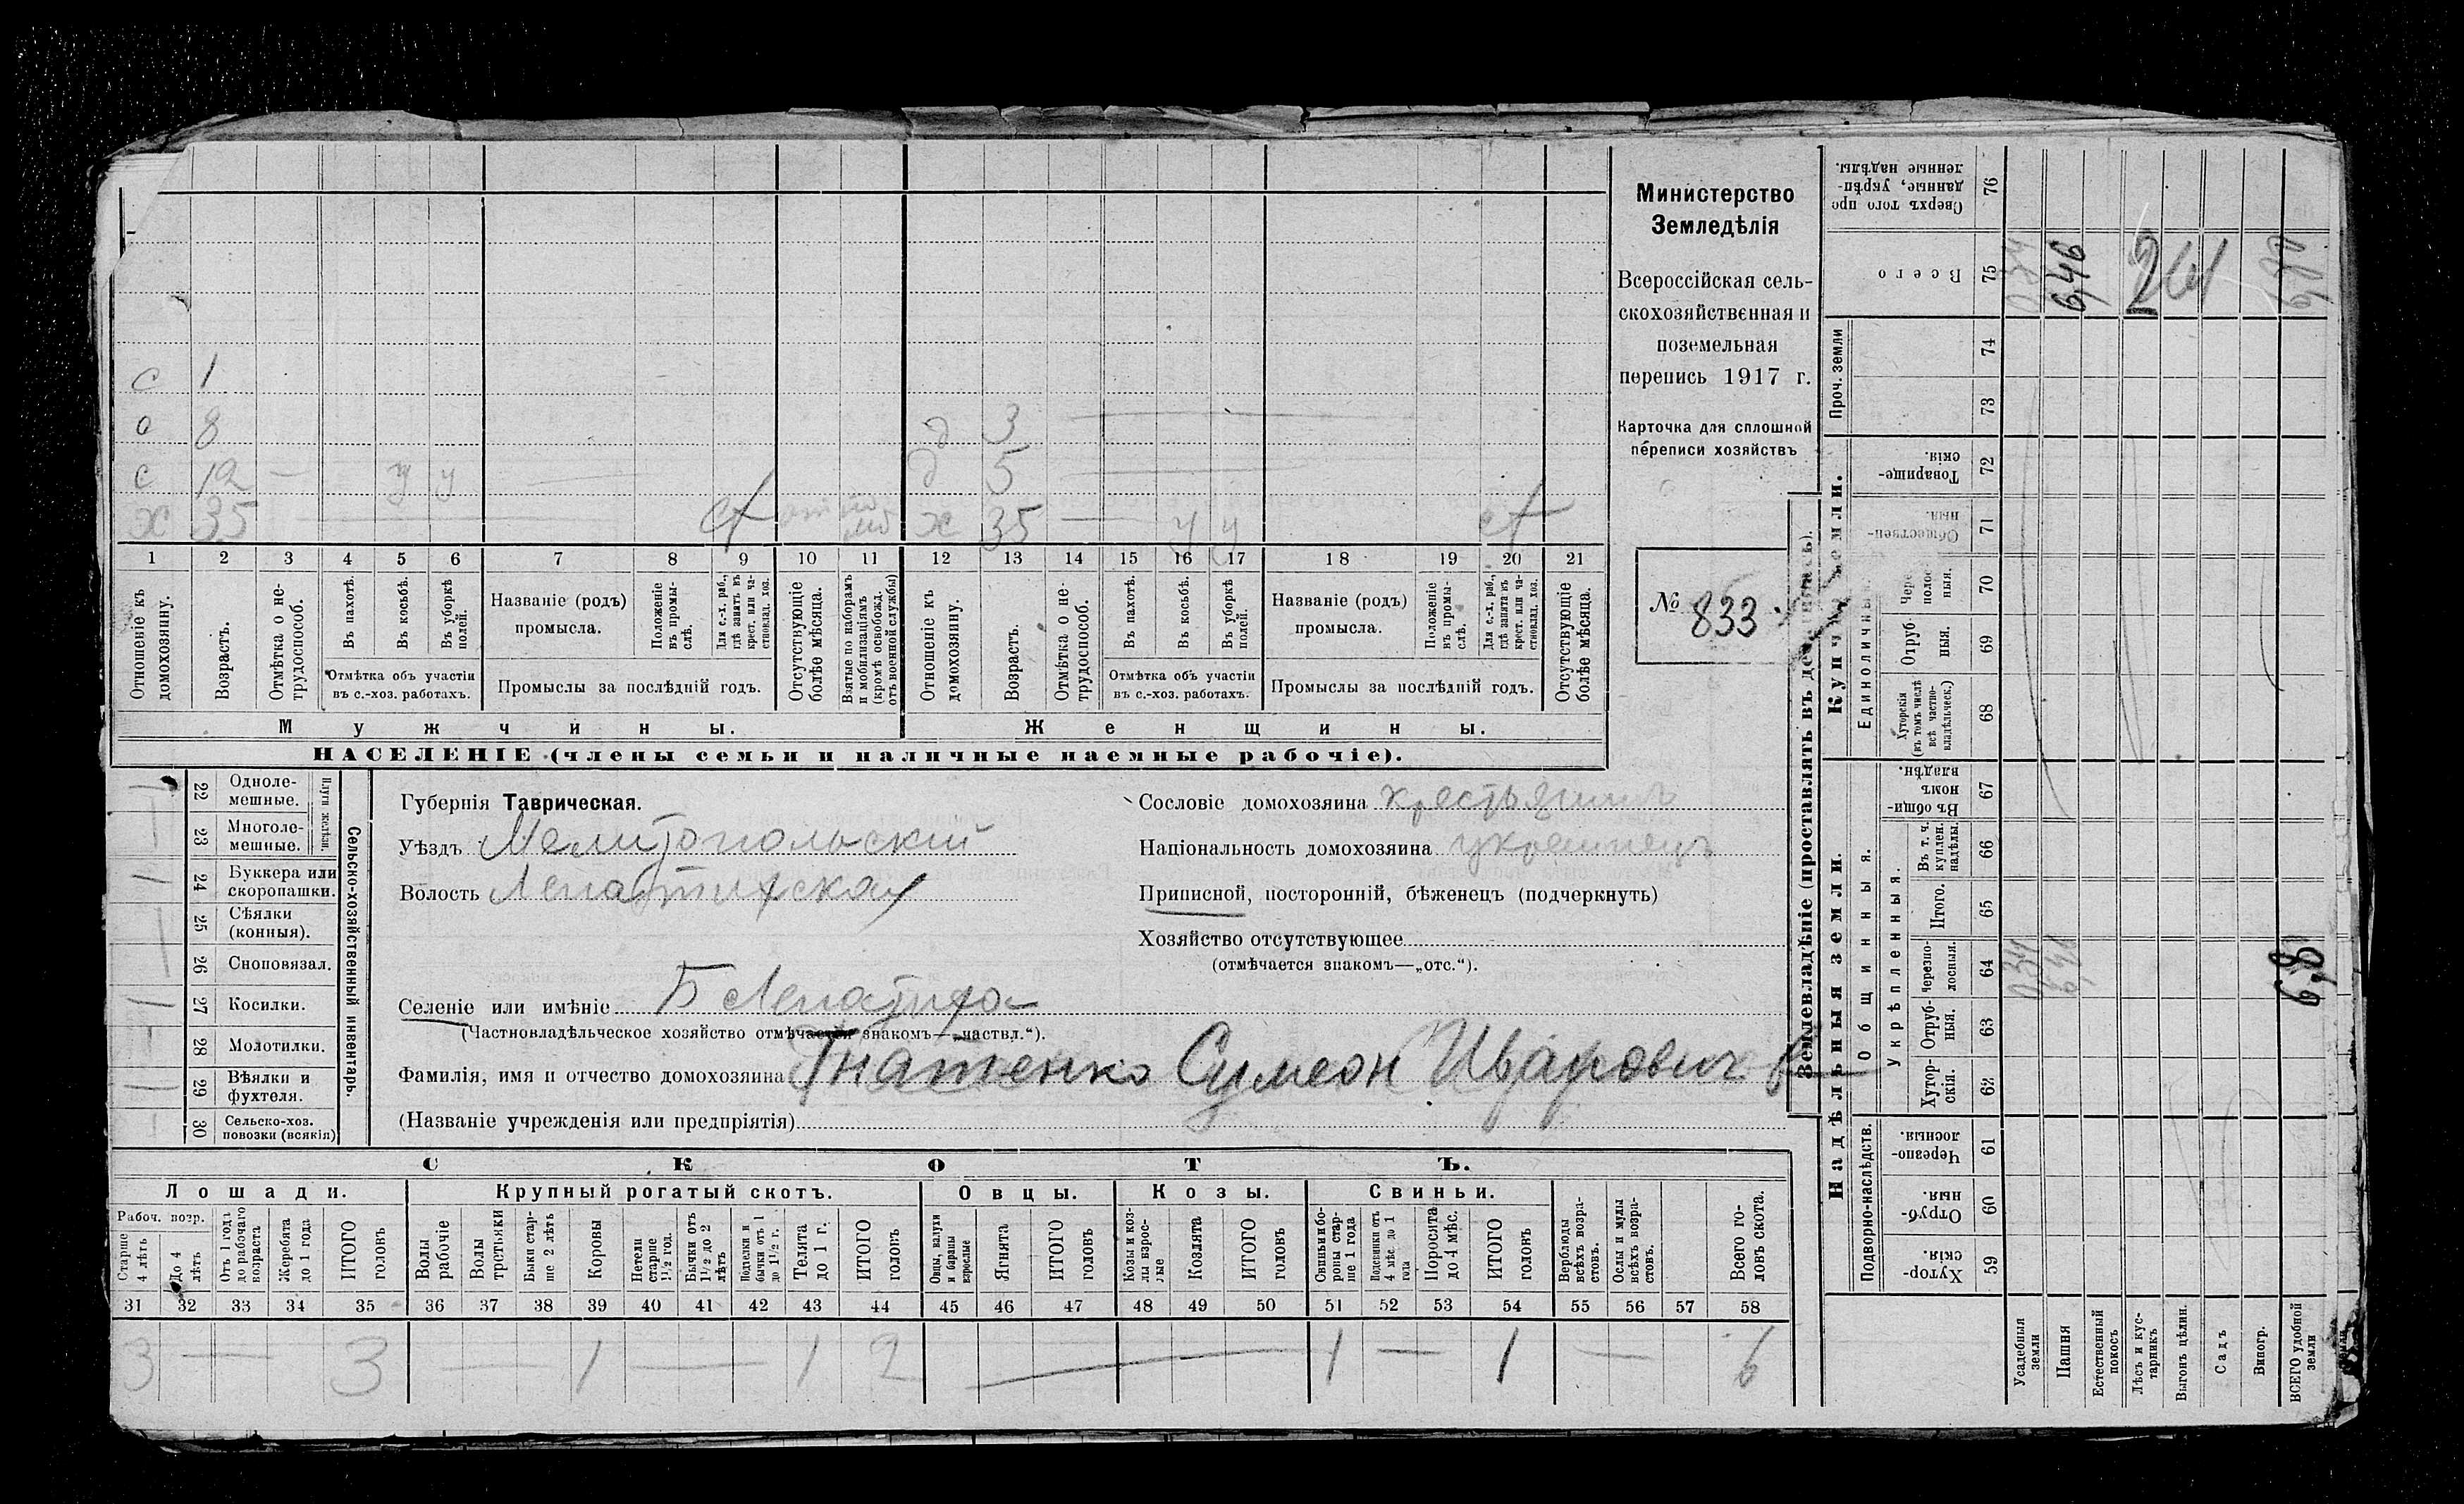 с 1
о 8 д 3
с 12 — у у — д 5 —
х 35 — х 35 — у у
1 2 3 4 5 6 7 8 9 10 11 12 13 14 15 16 17 18 19 20 21
Отношеніе къ домохозяину.
Возрастъ.
Отмѣтка о нетрудоспособ.
Въ пахотѣ.
Въ косьбѣ.
Въ уборкѣ полей.
Отмѣтка объ участіи въ с.-хоз. работахъ.
Названіе (родъ) промысла.
Положеніе въ промыслѣ.
Для с.-х. раб., гдѣ занятъ въ крест. или частновлад. хоз.
Промыслы за послѣдній годъ.
Отсутствующіе болѣе мѣсяца.
Взятые по наборамъ и мобилизаціямъ (кромѣ освобожд. отъ военной службы)
Отношеніе къ домохозяину.
Возрастъ.
Отмѣтка о нетрудоспособ.
Въ пахотѣ.
Въ косьбѣ.
Въ уборкѣ полей.
Отмѣтка объ участіи въ с.-хоз. работахъ.
Названіе (родъ) промысла.
Положеніе въ промыслѣ.
Для с.-х. раб., гдѣ занята въ крест. или частновлад. хоз.
Промыслы за послѣдній годъ.
Отсутствующіе болѣе мѣсяца.
Мужчины. Женщины.
НАСЕЛЕНІЕ (члены семьи и наличные наемные рабочіе).
Министерство
Земледѣлія
Всероссійская сель-
скохозяйственная и
поземельная
перепись 1917 г.
Карточка для сплошной
переписи хозяйствъ
№ 833
22 Одноле-
мешные.
23 Многоле-
мешные.
Плуги желѣзн.
24 Буккера или
скоропашки.
25 Сѣялки
(конныя).
26 Сноповязал.
27 Косилки.
28 Молотилки.
29 Вѣялки и
фухтеля.
30 Сельско-хоз.
повозки (всякія)
Сельско-хозяйственный инвентарь.
Губернія Таврическая.
Уѣздъ Мелитопольскій
Волость Лепатихская
Селеніе или имѣніе Б Лепатиха
(Частновладѣльческое хозяйство отмѣчается знакомъ—„частвл.“).
Фамилія, имя и отчество домохозяина Гнатенко Сумеон
(Названіе учрежденія или предпріятія)
Сословіе домохозяина крестьянинъ
Національность домохозяина украинецъ
Приписной, посторонній, бѣженецъ (подчеркнуть)
Хозяйство отсутствующее
(отмѣчается знакомъ—„отс.“).
СКОТЪ.
Лошади. Крупный рогатый скотъ. Овцы. Козы. Свиньи.
Рабоч. возр.
Старше 4 лѣтъ
До 4 лѣтъ
Отъ 1 года до рабочаго возраста
Жеребята до 1 года
ИТОГО головъ
Волы рабочіе
Волы третьяки
Быки старше 2 лѣтъ
Коровы
Нетели старше 1 1/2 год.
Бычки отъ 1 1/2 до 2 лѣтъ
Подтелки и бычки отъ 1 до 1 1/2 г.
Телята до 1 г.
ИТОГО головъ
Овцы, валухи и бараны взрослые
Ягнята
ИТОГО головъ
Козы и козлы взрослые
Козлята
ИТОГО головъ
Свиньи и боровы старше 1 года
Подсвинки отъ 4 мѣс. до 1 года
Поросята до 4 мѣс.
ИТОГО головъ
Верблюды всѣхъ возрастовъ.
Ослы и мулы всѣхъ возрастовъ.
Всего головъ скота.
31 32 33 34 35 36 37 38 39 40 41 42 43 44 45 46 47 48 49 50 51 52 53 54 55 56 57 58
3 — 3 — 1 — 1 2 — 1 — 1 — 6
Землевладѣніе (проставлять въ
Надѣльныя земли.
Купчія земли.
Проч. земли
Подворно-наслѣдств.
Общинныя.
Укрѣпленныя.
Единоличныя.
Хуторскія 59
Отрубныя 60
Черезполосныя. 61
Хуторскія. 62
Отрубныя. 63
Черезполосныя. 64
Итого. 65
Въ т. ч. куплен. надѣлы. 66
Въ общинномъ владѣн. 67
Хуторскія (въ томъ числѣ всѣ частновладѣльческ.) 68
Отрубныя. 69
Черезполосныя. 70
Общественныя. 71
Товарищескія. 72
73
74
Всего 75
Сверхъ того проданные, укрѣпленные надѣлы. 76
Усадебныя земли 0,34 0,34
Пашня 6,46 6,46
Естественный покосъ
Лѣсъ и кустарникъ
Выгонъ цѣлин.
Садъ
Виногр.
ВСЕГО удобной земли 6,8 6,80